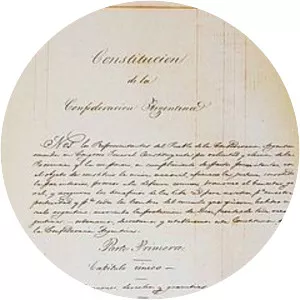 Constitucion
de la
Confederacion Argentina
Nos los Representantes del Pueblo de la Confederacion Argentina
reunidos en Congreso General Constituyente por voluntad y eleccion de las
Provincias
el objeto de constituir la union nacional, afianzar la justicia, consolidar
la paz interior, proveer a la defensa comun, promover el bienestar
general, y asegurar los beneficios de la libertad para nosotros, para nuestra
posteridad y para todos los hombres del mundo que quieran habitar en el
suelo argentino; invocando la proteccion de Dios, fuente de toda razon y
justicia: ordenamos, decretamos y establecemos esta Constitucion para
la Confederacion Argentina.
Parte Primera.
Capitulo único.
derechos y garantias